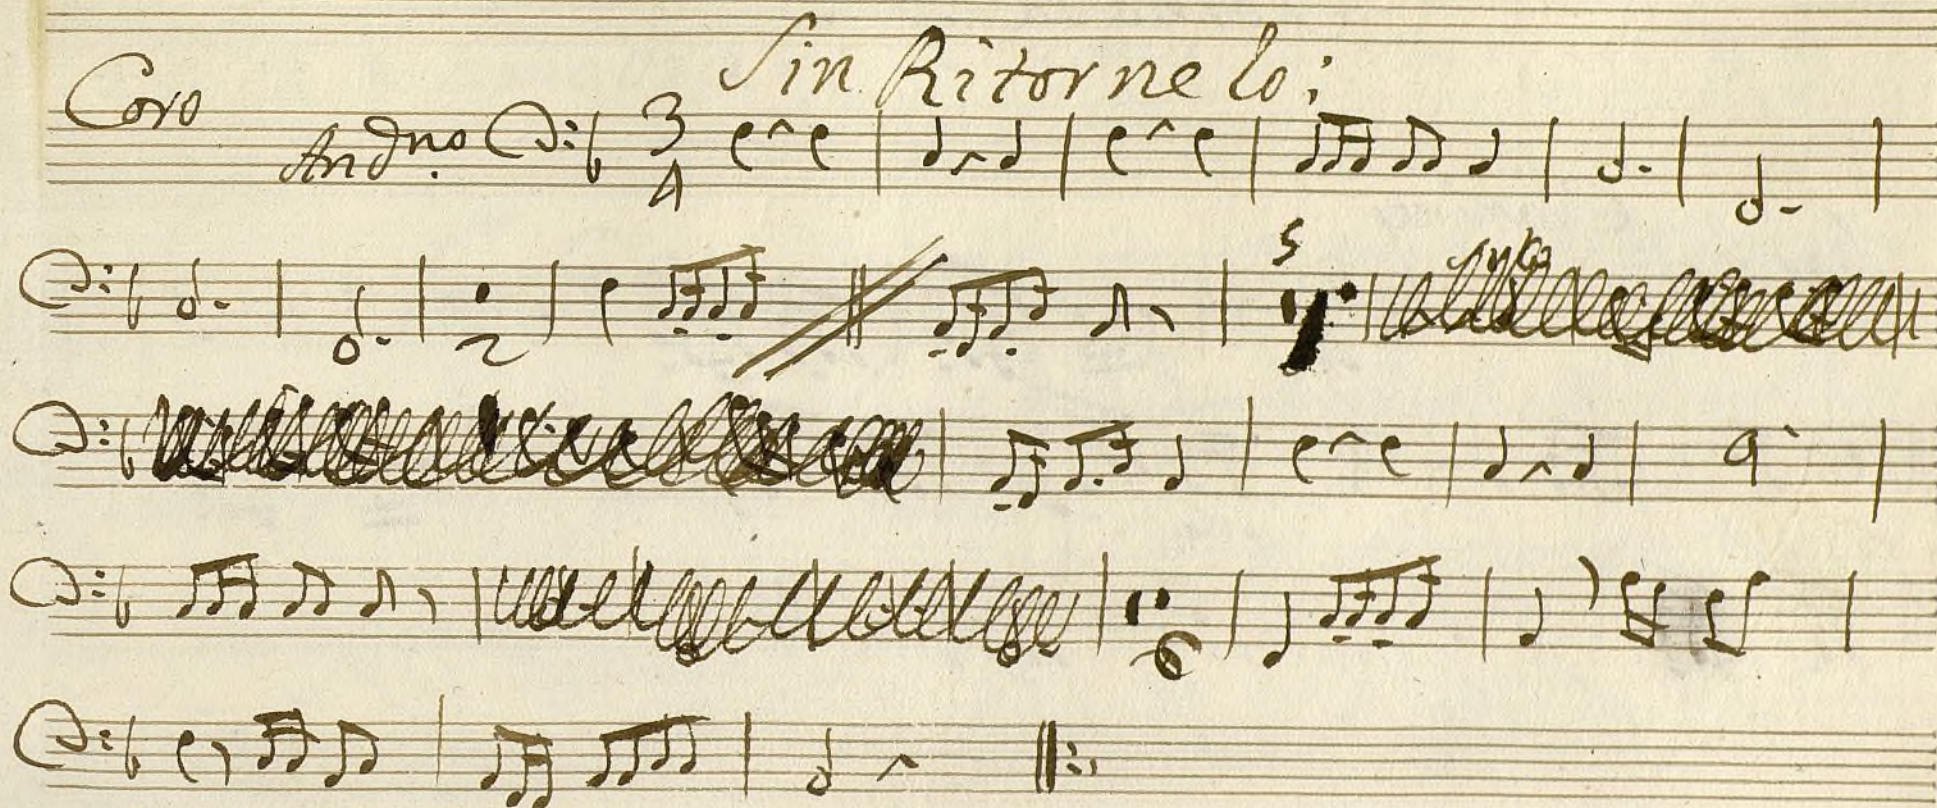 Sin Ritornelo;
Coro
Andno. 3
4
2
5
6